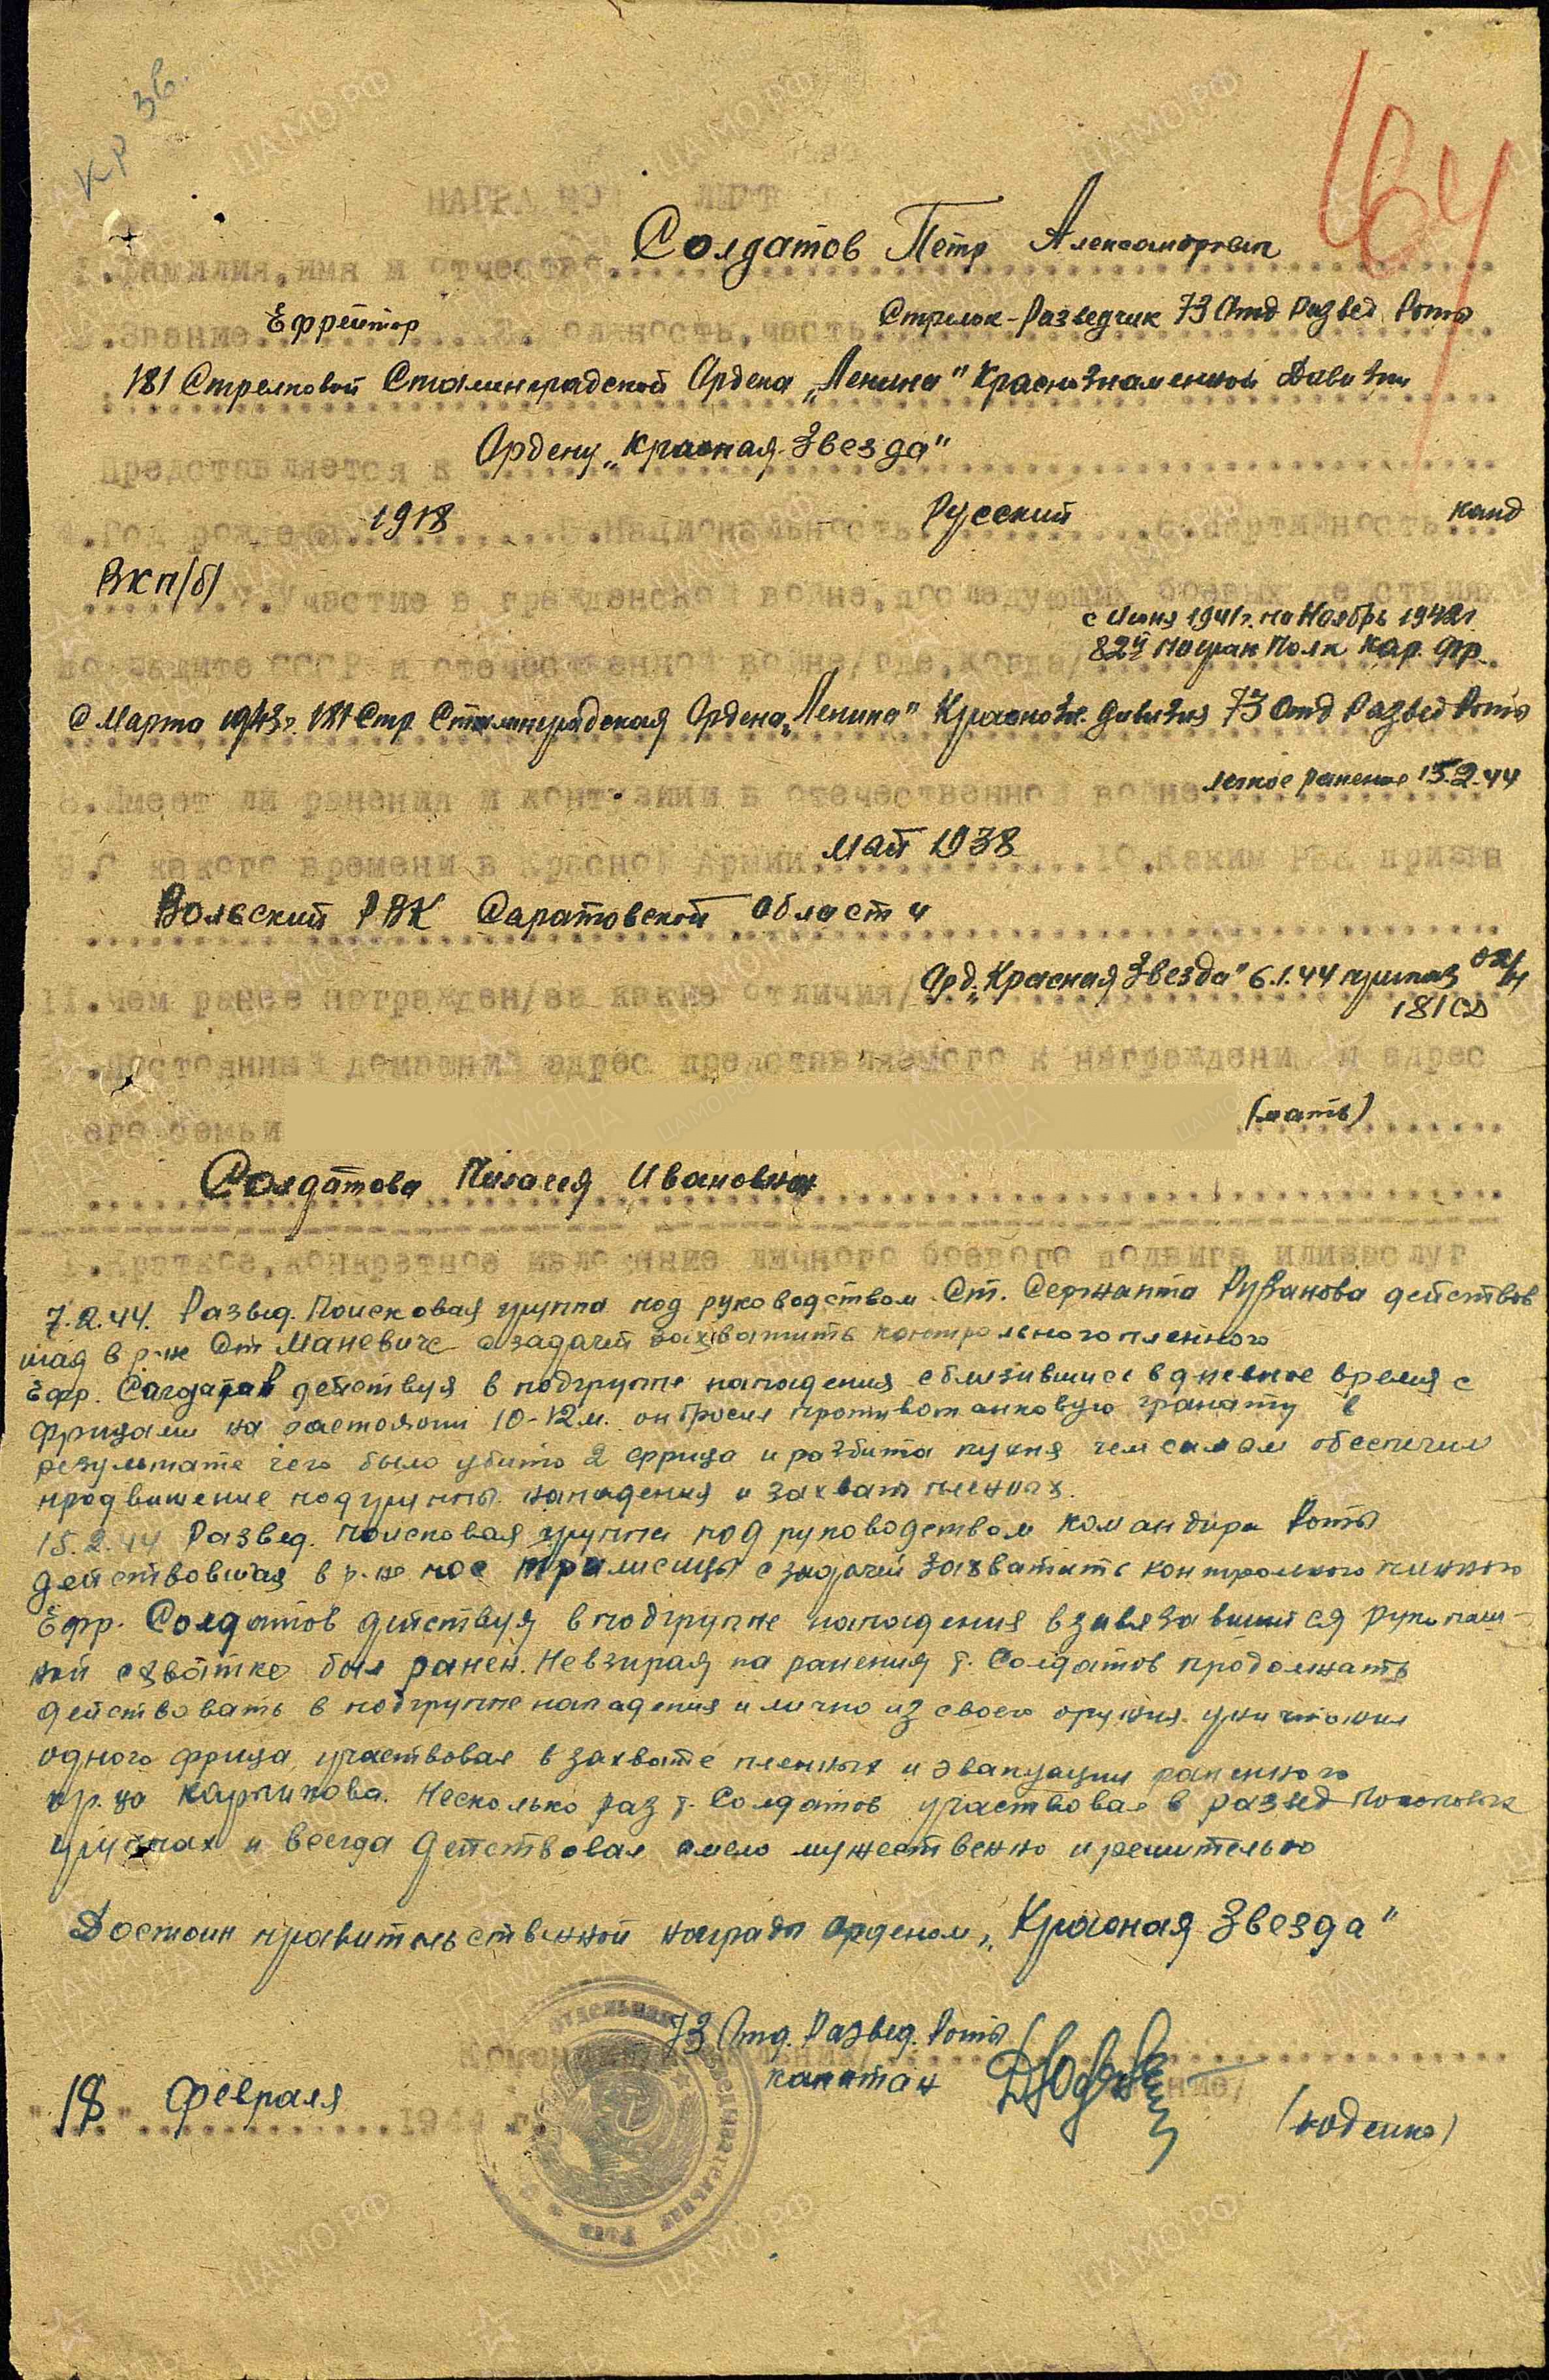 Кр зв.
164
НАГРАДНОЙ ЛИСТ
1.Фамилия,имя и отчество Солдатов Петр Александрович
2.Звание Ефрейтор 3. Должность,часть Стрелок-Разведчик 73 Отд Развед Роты
181 Стрелковой Сталинградской Ордена „Ленина" Краснознаменной Дивизии
Представляется к Ордену „Красная Звезда"
4.Год рождения 1918 5.Национальность Русский 6.Партийность канд
ВКП/б/ 7.Участие в гражданской войне,последующих боевых действиях
по защите СССР и отечественной войне/где,когда/ с Июня 1941г. по Ноябрь 1942г
82й Погран Полк Кар. фр.
С Марта 1943г. 181 Стр Сталинградская Ордена „Ленина" Краснозн. дивизия 73 Отд Развед Рота
8.Имеет ли ранения и контузии в отечественной войне легкое ранение 15.2.44
9.С какого времени в Красной Армии май 1938 10.Каким РВК призван
Вольский РВК Саратовской Области
11.Чем ранее награжден/за какие отличия/ Орд. „Красная Звезда" 6.1.44 приказ 02/н
181 СД
12.Постоянный домашний адрес представляемого к награждению и адрес
его семьи (мать)
Солдатова Ивановна
1.Краткое,конкретное изложение личного боевого подвига или заслуг
7.2.44. Развед. Поисковая группа под руководством Ст. Сержанта Рузанова действов
шая в р-не Ст Маневиче с задачей захватить контрольного пленного
Ефр. Солдатов действуя в подгруппе нападения сблизившись в дневное время с
фрицами на растоянии 10-12м. он бросил противотанковую гранату в
результате чего было убито 2 фрица и разбита кухня чем самым обеспечил
продвижение подгруппы нападения и захват пленных.
15.2.44 Развед. поисковая группа под руководством командира Роты
действовшая в р-не пос с задачей захватить контрольного пленного
Ефр. Солдатов действуя в подгруппе нападения в завязавшийся рукопаш-
ной схватке был ранен. Невзирая на ранения т. Солдатов продолжать
действовать в подгруппе нападения и лично из своего оружия уничтожил
одного фрица, участвовал в захвате пленных и эвакуации раненного
кр-ца Карпикова. Несколько раз т. Солдатов участвовал в развед Поисковых
группах и всегда действовал смело мужественно и решительно
Достоин правительственной награды орденом „Красная Звезда"
73 Отд. Развед. Роты
Командир
капитан
/Юденко/
18 февраля 19 г.
отдельная разведывательная рота